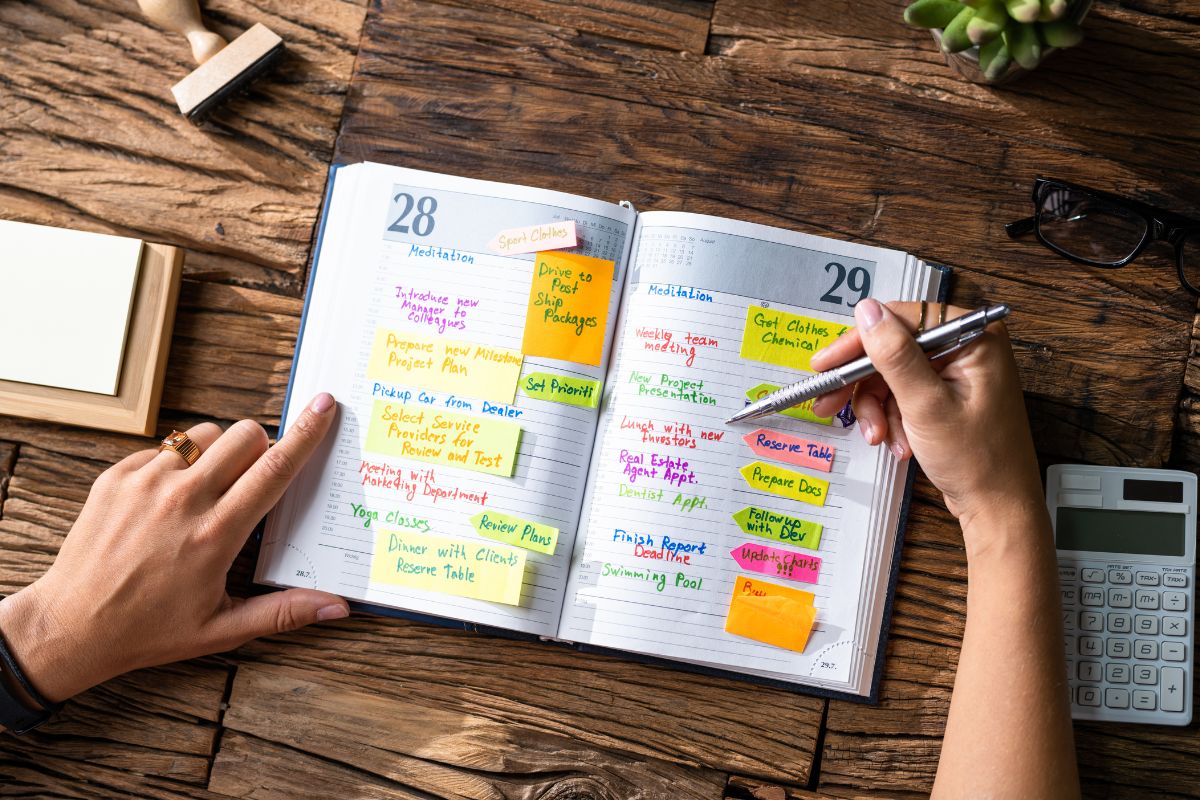 28
Sport Clothes
Meditation
Drive to
Post
Ship
Packages
Introduce new
Manager to
Colleagues
Prepare new Milestone
Project Plan
Set Prioriti
Pickup Car from Dealer
Select Service
Providers for
Review and Test
Meeting with
Marketing Department
Yoga Classes
Review Plans
Dinner with Clients
Reserve Table
28.7.
August
29
Meditation
Get Clothes f
Chemical
Weekly team
meeting
New Project
Presentation
Lunch with new
Investors
Reserve Table
Real Estate
Agent Appt.
Prepare Docs
Dentist Appt.
Followup
with Dev
Finish Report
Deadline
Update Charts
!!!
Swimming Pool
29.7.
TAX-
TAX+
%
M-
M+
MRC
7
8
9
4
5
6
1
2
3
0
+